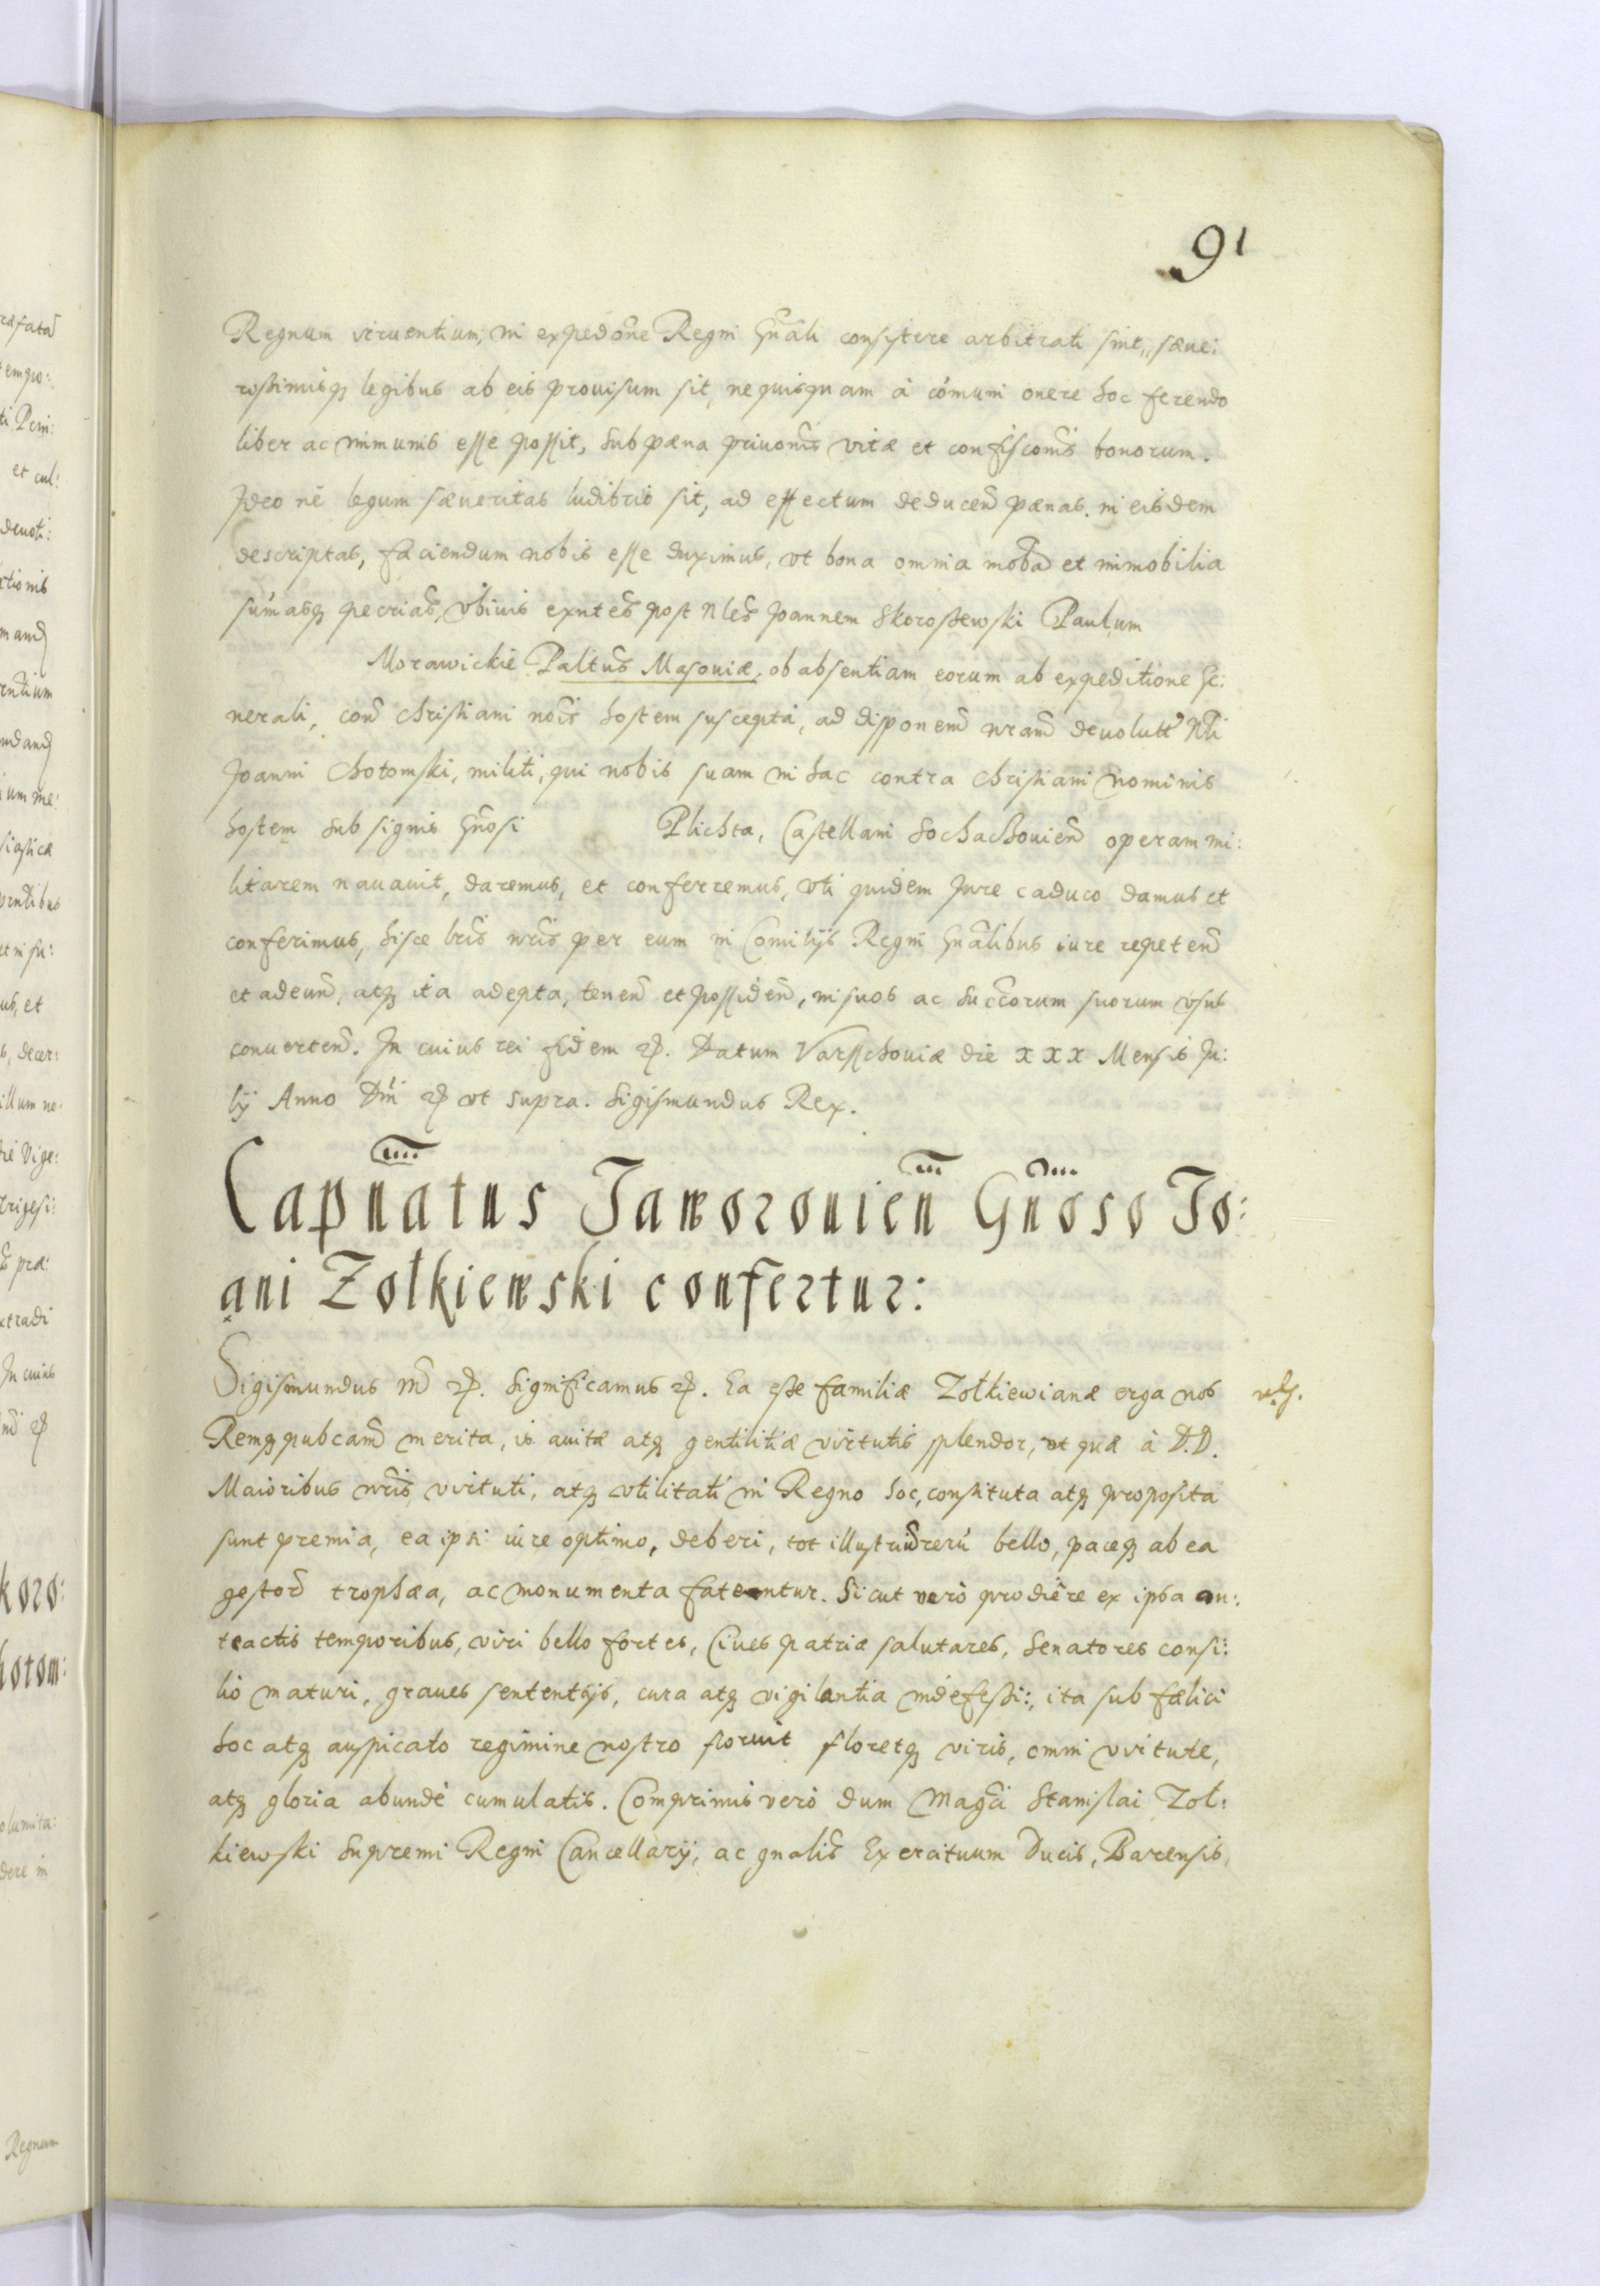 91
Regnum viruentium, in expedōne Regni Gn̄ali consistere arbitrati sint, sæue:
rissimisq; legibus ab eis prouisum sit, ne quisquam à cōmuni onere hoc ferendo
liber ac immunis esse possit, sub pæna priuonis vitæ et confisconis bonorum.
Ideo nè legum sæueritas ludibrio sit, ad effectum deducend pænas in eisdem
descriptas, faciendum nobis esse duximus, vt bona omnia mobā et immobilia
sūmasq; pecrias, vbiuis exntes post Nles Joannem Skoroszewski Paulum
Morawickie Paltus Masouiæ, ob absentiam eorum ab expeditione Ge:
nerali, con christiani nois hostem suscepta, ad disponem nram deuolutt Nli
Joanni Chotomski, militi, qui nobis suam in hac contra christiani nominis
hostem sub signis Gnosi Plichta, Castellani Sochachouien operam mi:
litarem nauauit, daremus, et conferremus, vti quidem Jure caduco damus et
conferimus, hisce lris nris per eum in Comitijs Regni Gnalibus iure repetend
et adeund, atq; ita adepta, tenend et possidend, in suos ac succorum suorum vsus
conuertend. In cuius rei fidem &. Datum Varsschouiæ die xxx Mensis Ju:
lij Anno Dni & vt supra. Sigismundus Rex.
Capn̄atus Jaworouien̄ Gn̄oso Jo:
ani Zołkiewski confertur:
Sigismundus III &. Significamus &. Ea esse familiæ Zołkiewianæ erga nos
Remq; pubcam merita, is auitæ atq; gentilitiæ virtutis splendor, vt quæ à D.D.
Maioribus nris virtuti, atq; vtilitati in Regno hoc, constituta atq; proposita
sunt premia, ea ipsi iure optimo, deberi, tot illustrium rerū bello, paceq; ab ea
gestor trophæa, ac monumenta fateantur. Sicut verò prodiêre ex ipsa an:
teactis temporibus, viri bello fortes, Ciues patriæ salutares, Senatores consi:
lio maturi, graues sententijs, cura atq; vigilantia indefessi:, ita sub fælici
hoc atq; auspicato regimine nostro floruit floretq; viris, omni virtute,
atq; gloria abundè cumulatis. Comprimis verò dum Magci Stanislai Zoł:
kiewski Supremi Regni Cancellarij, ac gnalis Exercituum Ducis, Barensis,